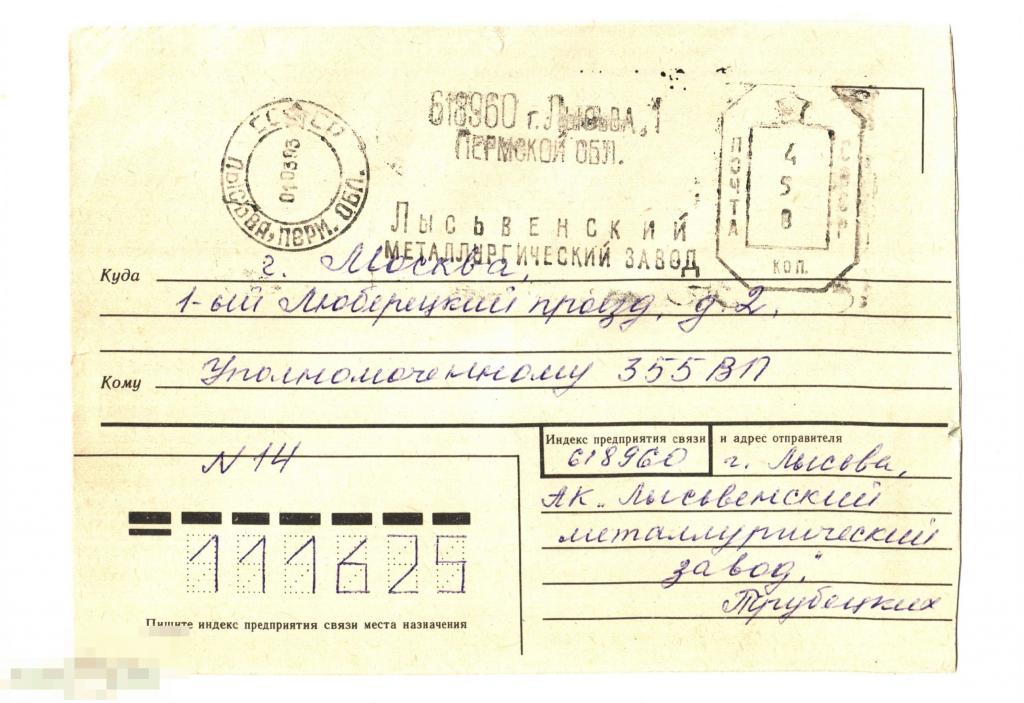 618960 г. Лысьва, 1
Пермской обл.
СССР
01 03 93
Лысьва, перм. обл.
Почта
458
СССР
коп.
Лысьвенский
металлургический завод
Куда г. Москва,
1-ый Люберецкий проезд, д. 2.
Кому Уполномоченному 355 ВП
N 14
Индекс предприятия связи и адрес отправителя
618960 г. Лысьва,
АК „Лысьвенский
металлургический
завод."
Трубецких
111625
Пишите индекс предприятия связи места назначения